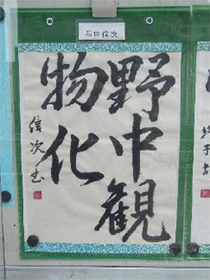 石田信次
野中観
物化
信次書